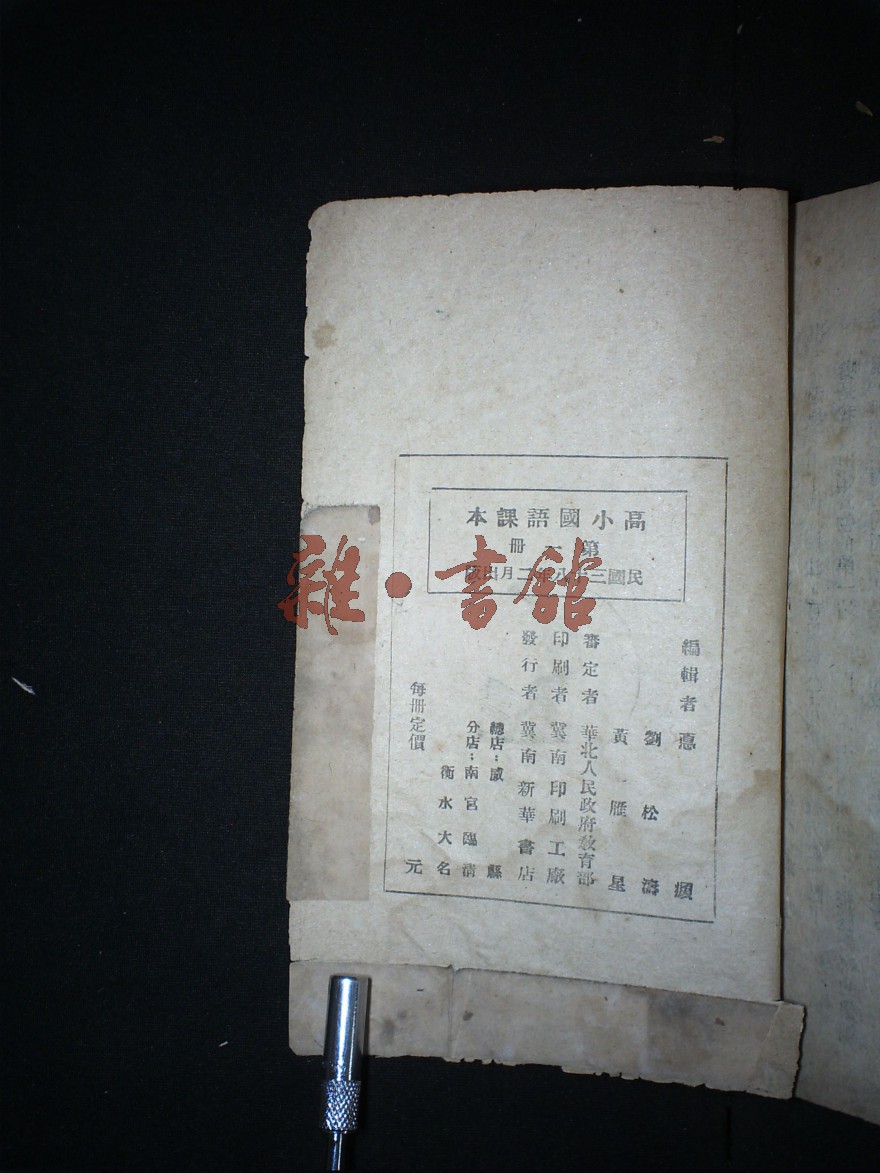 高小國語課本
第一冊
民國三十八年二月出版
編輯者 惪頫
劉松濤
黃雁星
審定者 華北人民政府教育部
印刷者 冀南印刷工廠
發行者 冀南新華書店
總店:威縣
分店:南宮臨清
衡水大名
每冊定價 元
雜·書館